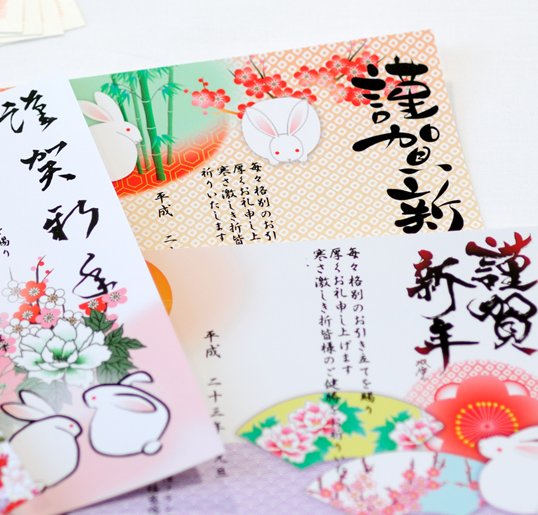 謹賀新
毎々格別のお引
厚くお礼申し上
寒さ激しき折皆
祈りいたします
平成 二
謹賀新年
謹賀
新年
毎々格別のお引き立てを賜り
厚くお礼申し上げます
寒さ激しき折皆様のご健勝
平成 二十三年 元旦